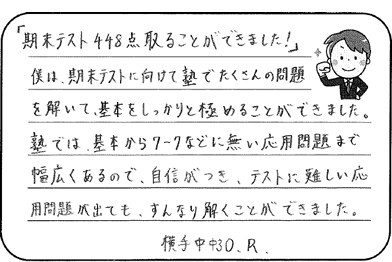 「期末テスト448点取ることができました!」
僕は、期末テストに向けて塾でたくさんの問題
を解いて、基本をしっかりと極めることができました。
塾では、基本からワークなどに無い応用問題まで
幅広くあるので、自信がつき、テストに難しい応
用問題が出ても、すんなり解くことができました。
横手中中3O.R.